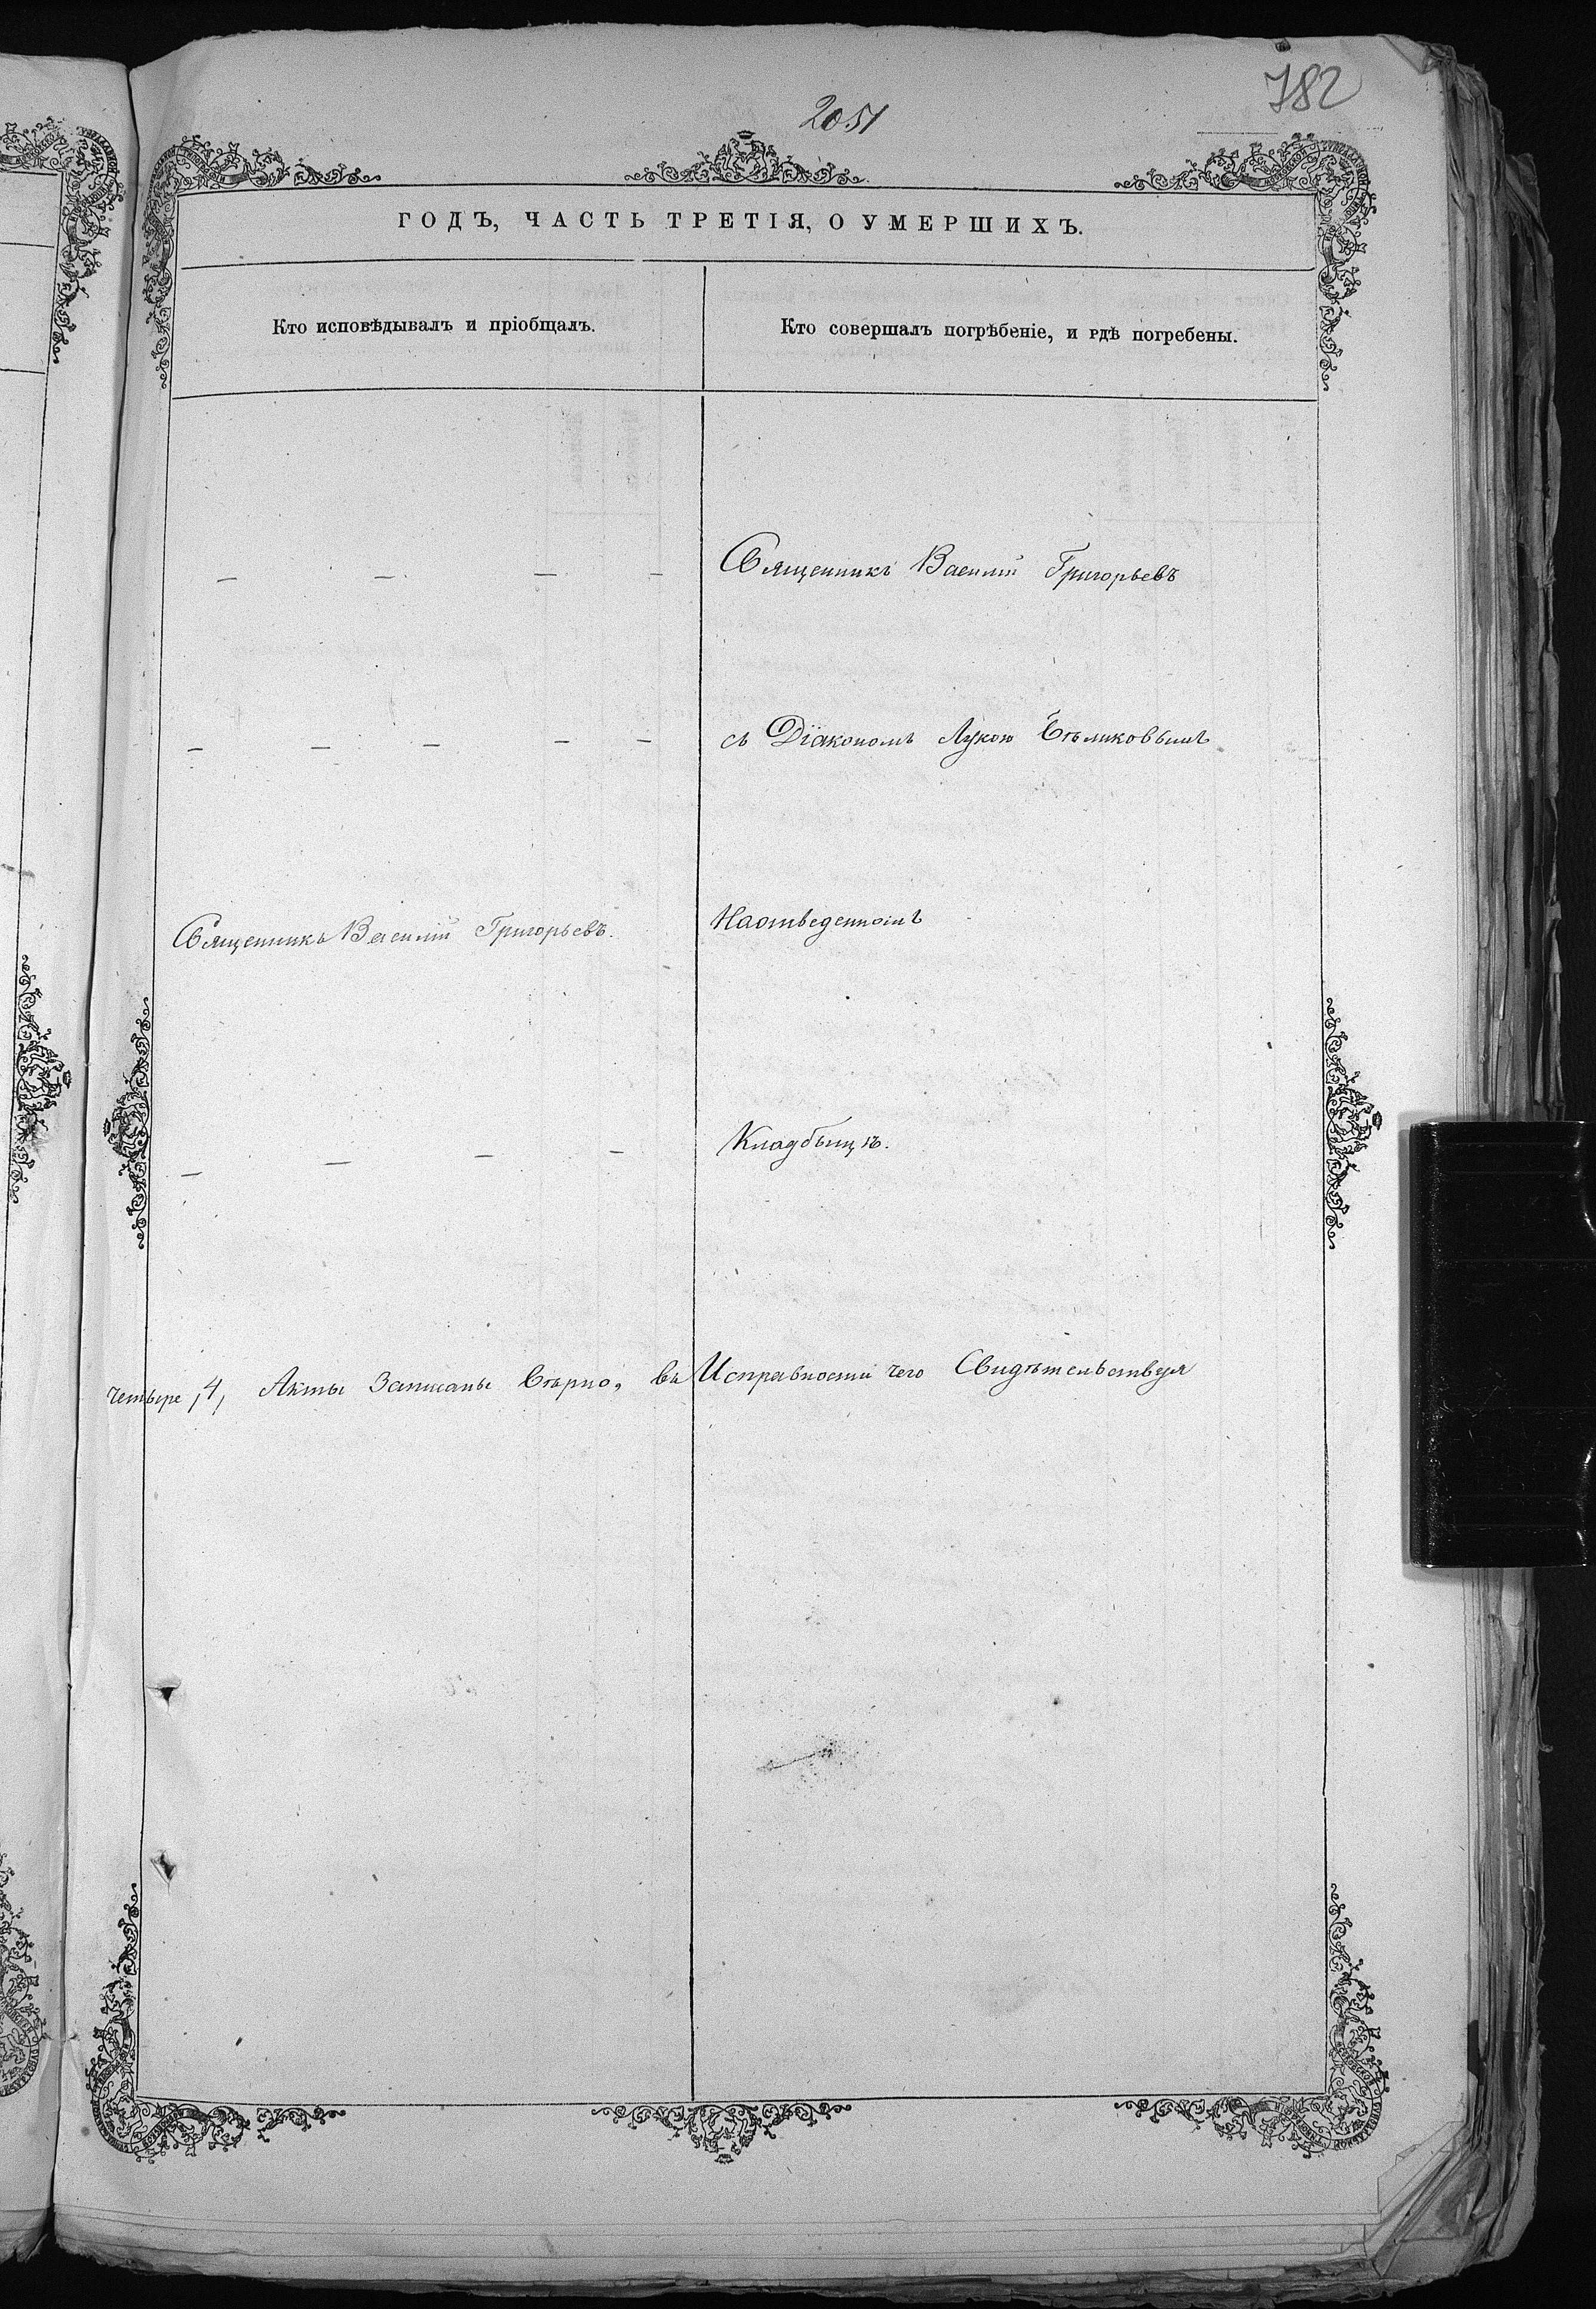 782
2051
ГОДЪ, ЧАСТЬ ТРЕТІЯ, О УМЕРШИХЪ.
Кто исповѣдывалъ и пріобщалъ.
Кто совершалъ погрѣбеніе, и гдѣ погребены.
— — — — Священникъ Василій Григорьевъ
— — — — — съ Діакономъ Лукою Бѣликовымъ
Священникъ Василій Григорьевъ. Наотведенномъ
— — — — Кладбыщѣ.
четыре /4/ Акты Записаны Вѣрно, въ Исправности чего Свидѣтельствуя